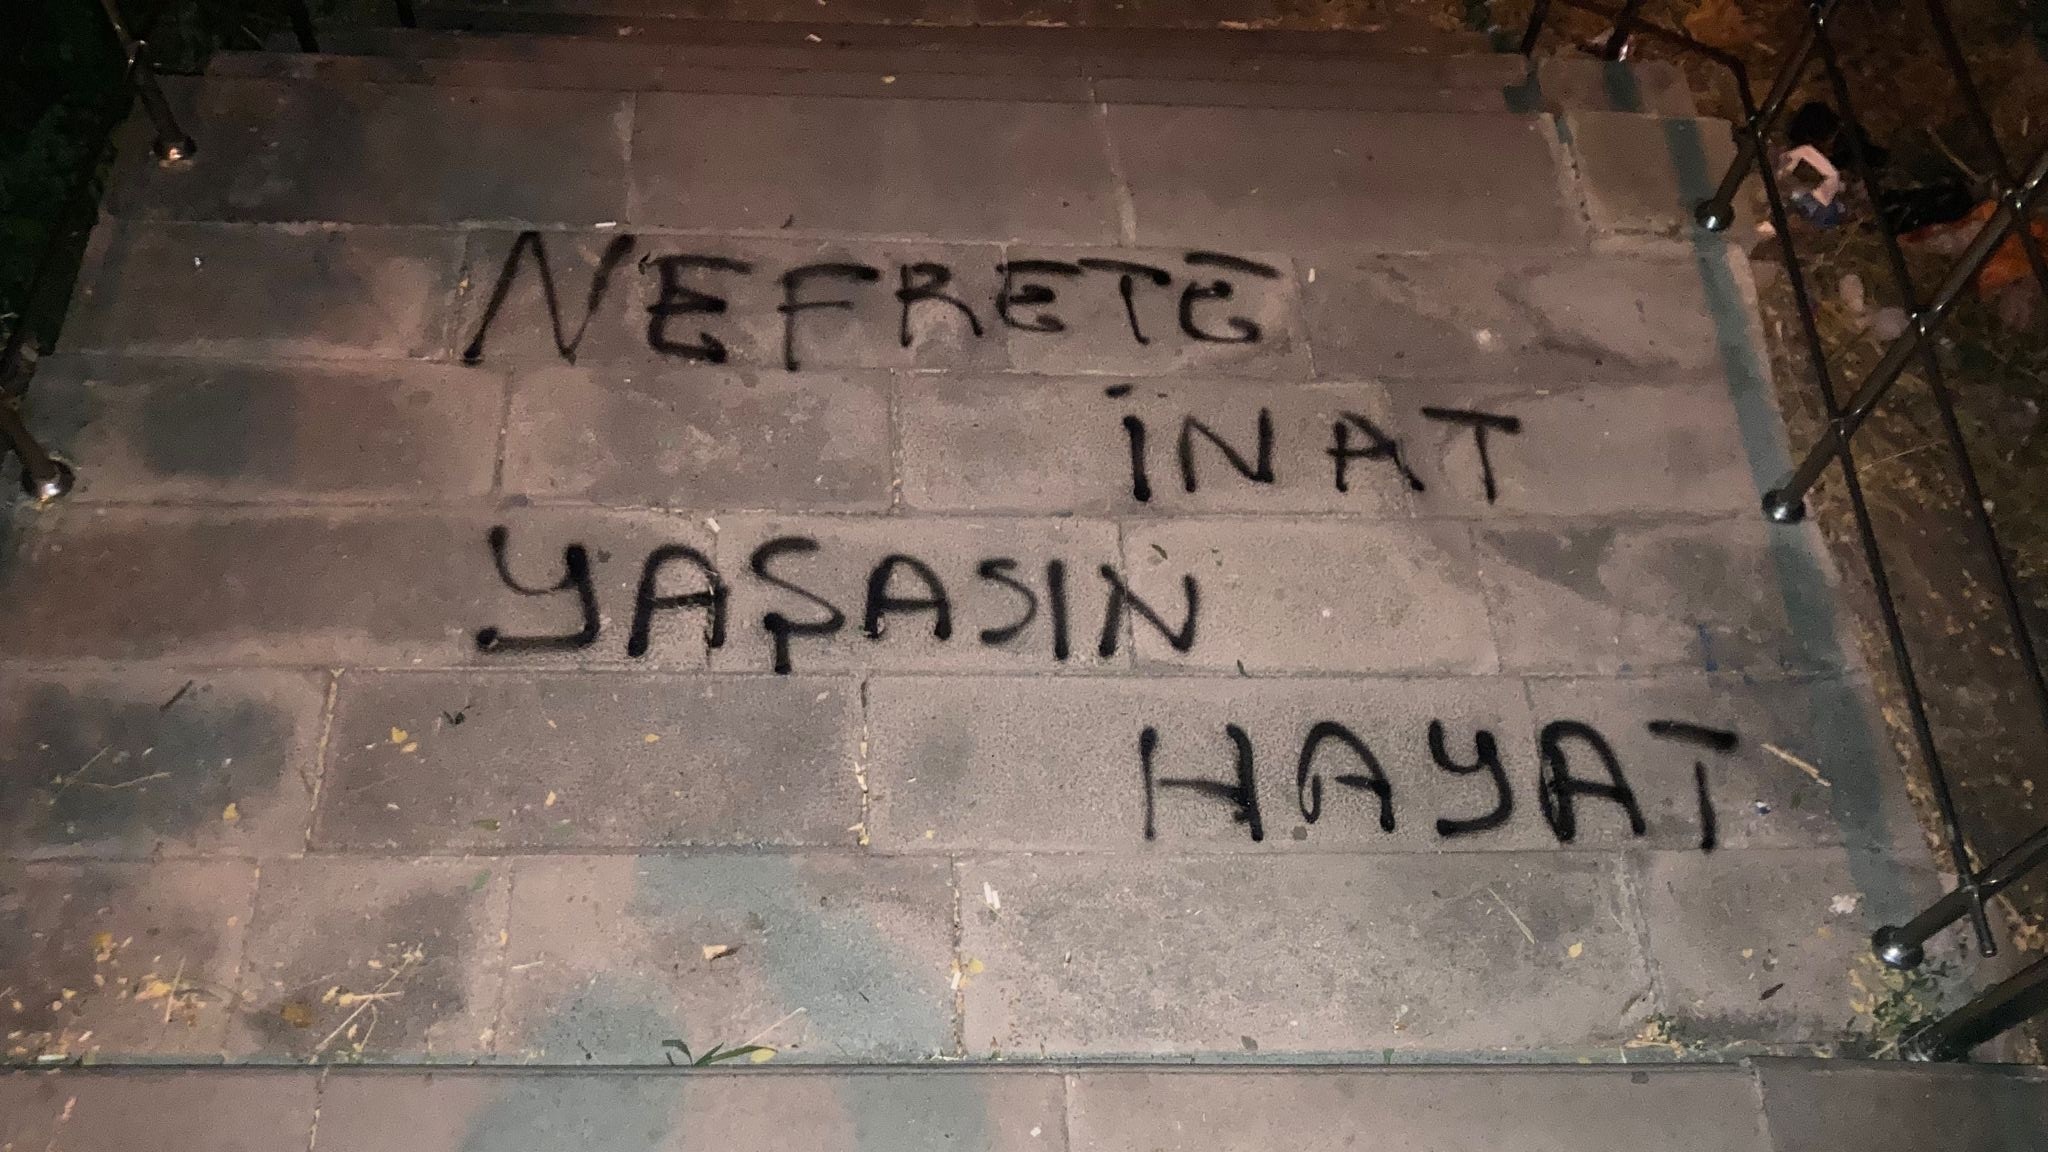 NEFRETE
İNAT
YAŞASIN
HAYAT